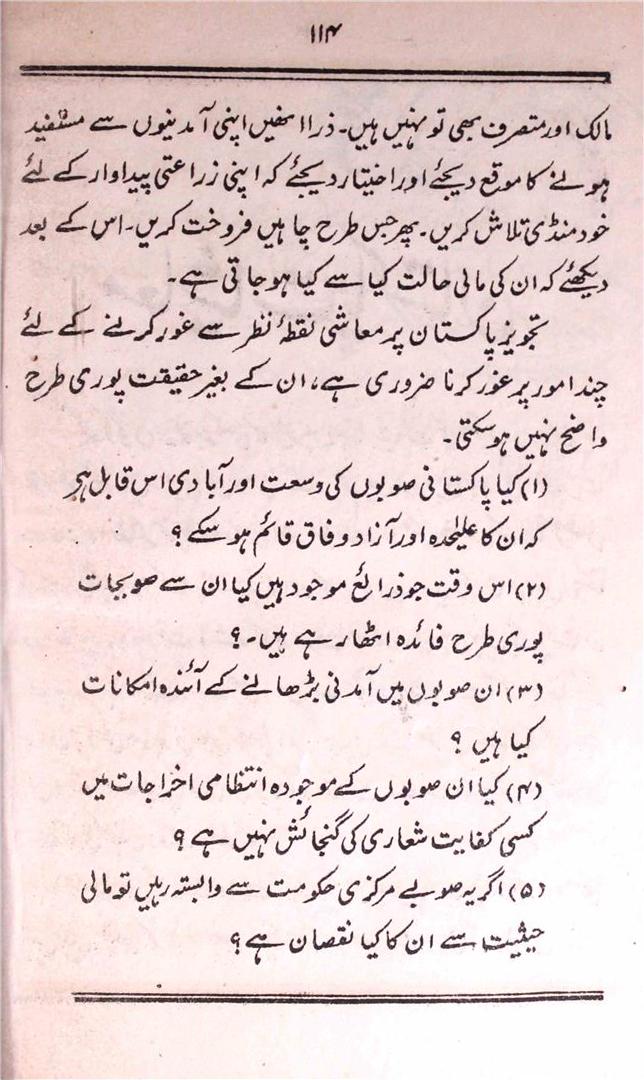 ۱۱۴
مالک اور متصرف بھی تو نہیں ہیں۔ ذرا انھیں اپنی آمدنیوں سے مستفید
ہونے کا موقع دیجئے اور اختیار دیجئے کہ اپنی زراعتی پیداوار کے لئے
خود منڈی تلاش کریں۔ پھر جس طرح چاہیں فروخت کریں۔ اس کے بعد
دیکھئے کہ ان کی مالی حالت کیا سے کیا ہو جاتی ہے۔
تجویز پاکستان پر معاشی نقطۂ نظر سے غور کرنے کے لئے
چند امور پر غور کرنا ضروری ہے، ان کے بغیر حقیقت پوری طرح
واضح نہیں ہو سکتی۔
(۱) کیا پاکستانی صوبوں کی وسعت اور آبادی اس قابل ہے
کہ ان کا علیٰحدہ اور آزاد وفاق قائم ہو سکے؟
(۲) اس وقت جو ذرائع موجود ہیں کیا ان سے صوبجات
پوری طرح فائدہ اٹھا رہے ہیں۔؟
(۳) ان صوبوں میں آمدنی بڑھانے کے آئندہ امکانات
کیا ہیں؟
(۴) کیا ان صوبوں کے موجودہ انتظامی اخراجات میں
کسی کفایت شعاری کی گنجائش نہیں ہے؟
(۵) اگر یہ صوبے مرکزی حکومت سے وابستہ رہیں تو مالی
حیثیت سے ان کا کیا نقصان ہے؟